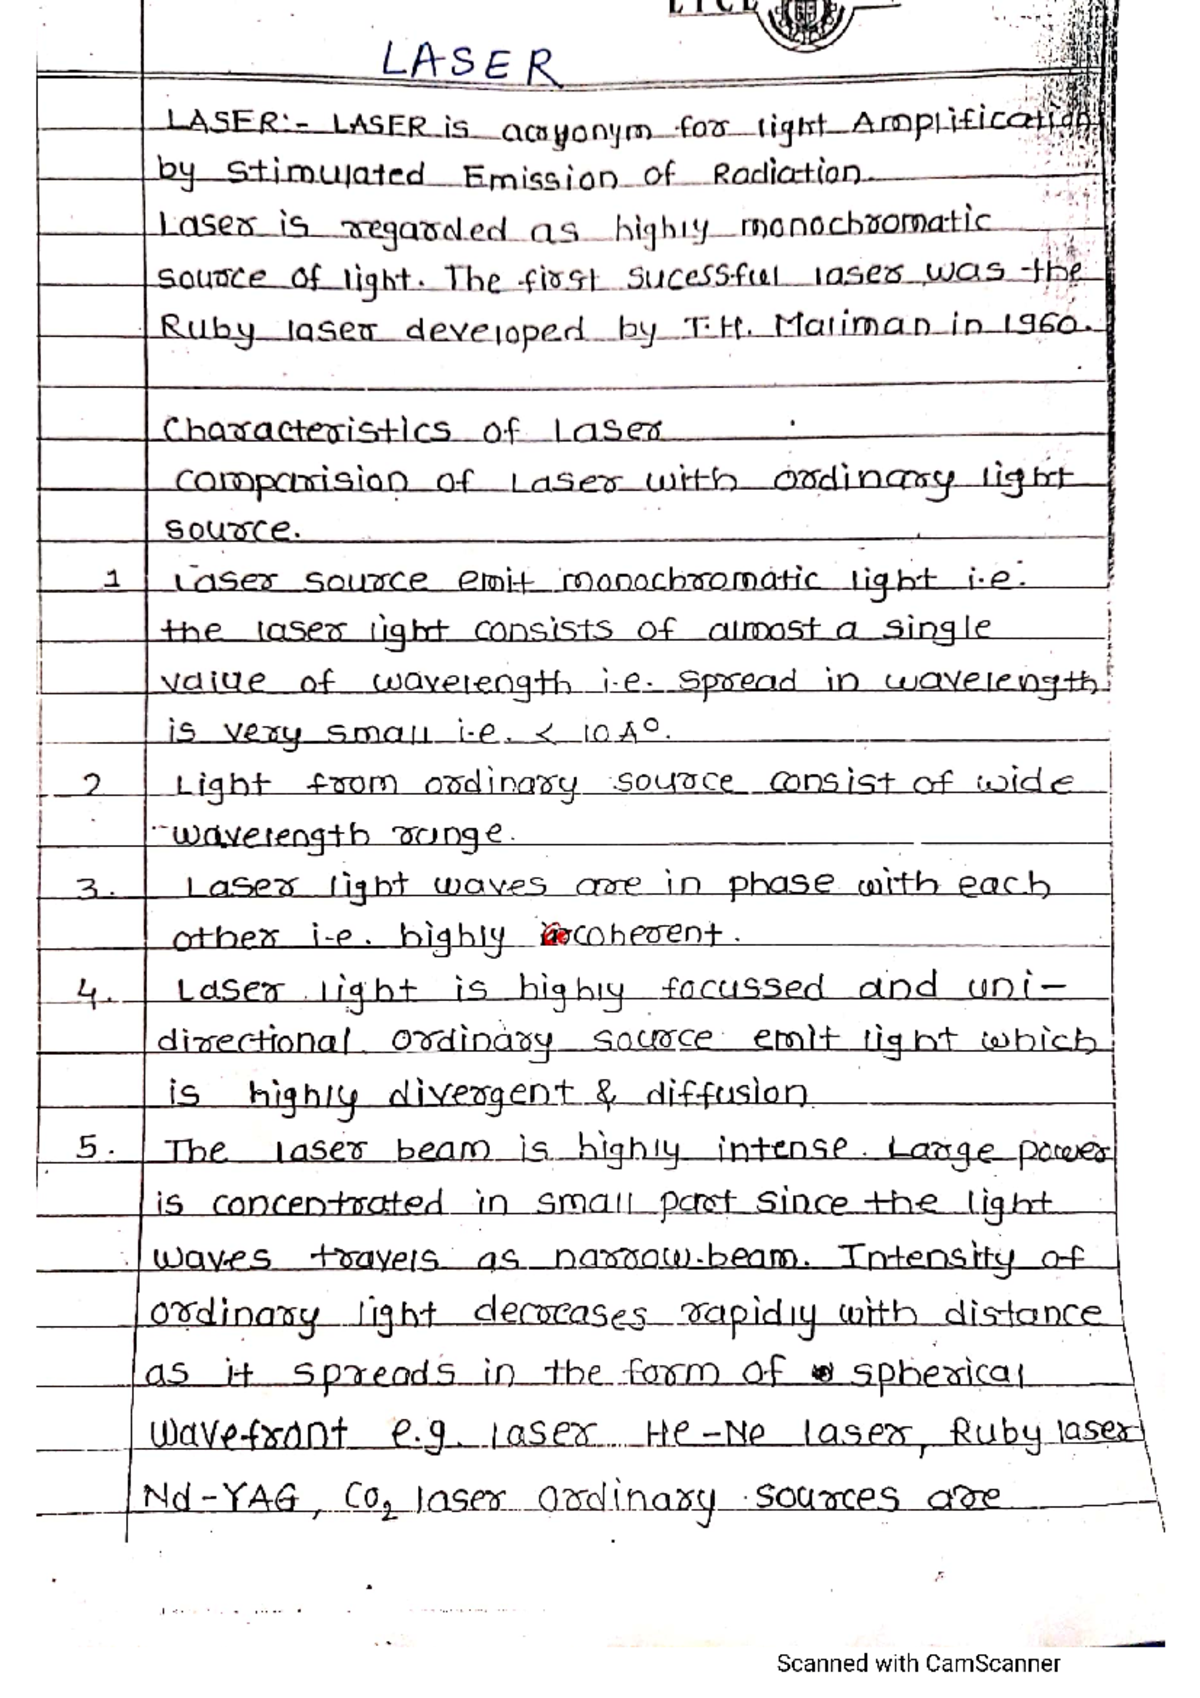 LASER
LASER:- LASER is acroyonym for light Amplification
by Stimulated Emission of Radiation.
Laser is regarded as highly monochromatic
source of light. The first sucessful laser was the
Ruby laser developed by T.H. Mariman in 1960.
Characteristics of Laser
comparision of Laser with ordinary light
source.
1 Laser source emit monochromatic light i.e.
the laser light consists of almost a single
value of wavelength i.e. spread in wavelength
is very small i.e. < 10 A°.
2 Light from ordinary source consist of wide
wavelength range.
3. Laser light waves are in phase with each
other i.e. highly coherent.
4. Laser light is highly focussed and uni-
directional. ordinary source emit light which
is highly divergent & diffusion
5. The laser beam is highly intense. Large power
is concentrated in small part since the light
waves travels as narrow beam. Intensity of
ordinary light decreases rapidly with distance
as it spreads in the form of spherical
wavefront e.g. laser He-Ne laser, Ruby laser
Nd-YAG, CO2 laser ordinary sources are
Scanned with CamScanner